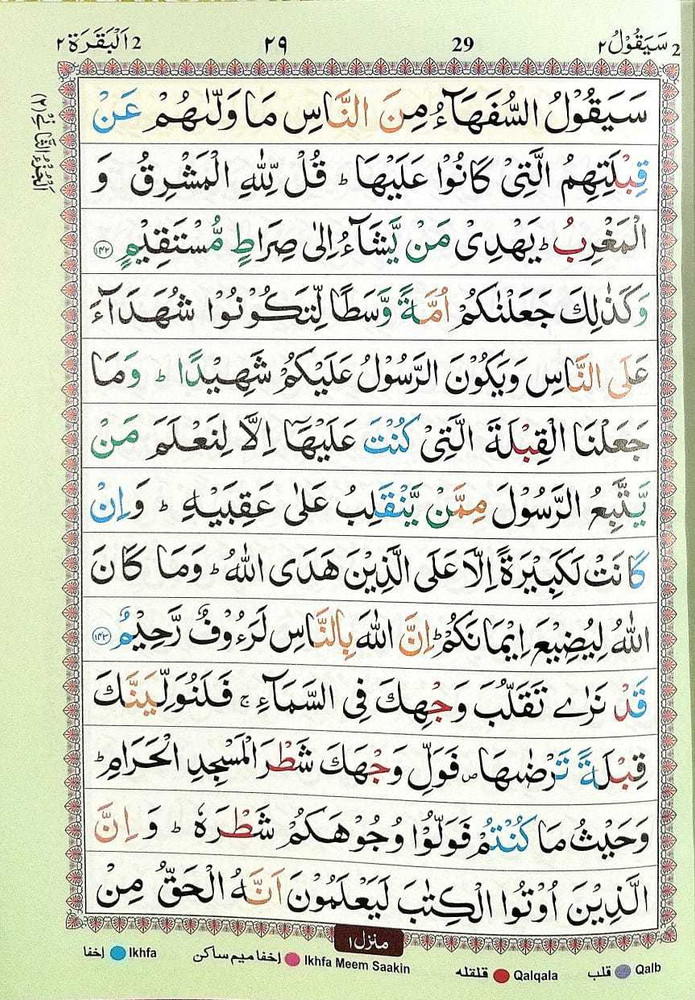 2 سَيَقُوْلُ ٢ 29 ٢٩ 2 اَلْبَقَرَة ٢
اَلْجُزْءُ الثَّانِيْ (٢)
سَيَقُوْلُ السُّفَهَآءُ مِنَ النَّاسِ مَا وَلّٰىهُمْ عَنْ
قِبْلَتِهِمُ الَّتِيْ كَانُوْا عَلَيْهَا ؕ قُلْ لِّلّٰهِ الْمَشْرِقُ وَ
الْمَغْرِبُ ؕ يَهْدِيْ مَنْ يَّشَآءُ اِلٰى صِرَاطٍ مُّسْتَقِيْمٍ ١٤٢
وَكَذٰلِكَ جَعَلْنٰكُمْ اُمَّةً وَّسَطًا لِّتَكُوْنُوْا شُهَدَآءَ
عَلَى النَّاسِ وَيَكُوْنَ الرَّسُوْلُ عَلَيْكُمْ شَهِيْدًا ؕ وَمَا
جَعَلْنَا الْقِبْلَةَ الَّتِيْ كُنْتَ عَلَيْهَاۤ اِلَّا لِنَعْلَمَ مَنْ
يَّتَّبِعُ الرَّسُوْلَ مِمَّنْ يَّنْقَلِبُ عَلٰى عَقِبَيْهِ ؕ وَاِنْ
كَانَتْ لَكَبِيْرَةً اِلَّا عَلَى الَّذِيْنَ هَدَى اللّٰهُ ؕ وَمَا كَانَ
اللّٰهُ لِيُضِيْعَ اِيْمَانَكُمْ ؕ اِنَّ اللّٰهَ بِالنَّاسِ لَرَءُوْفٌ رَّحِيْمٌ ١٤٣
قَدْ نَرٰى تَقَلُّبَ وَجْهِكَ فِي السَّمَآءِ ۚ فَلَنُوَلِّيَنَّكَ
قِبْلَةً تَرْضٰىهَا ۪ فَوَلِّ وَجْهَكَ شَطْرَ الْمَسْجِدِ الْحَرَامِ ؕ
وَحَيْثُ مَا كُنْتُمْ فَوَلُّوْا وُجُوْهَكُمْ شَطْرَهٗ ؕ وَ اِنَّ
الَّذِيْنَ اُوْتُوا الْكِتٰبَ لَيَعْلَمُوْنَ اَنَّهُ الْحَقُّ مِنْ
منزل ١
اخفا Ikhfa اخفا میم ساکن Ikhfa Meem Saakin قلقله Qalqala قلب Qalb